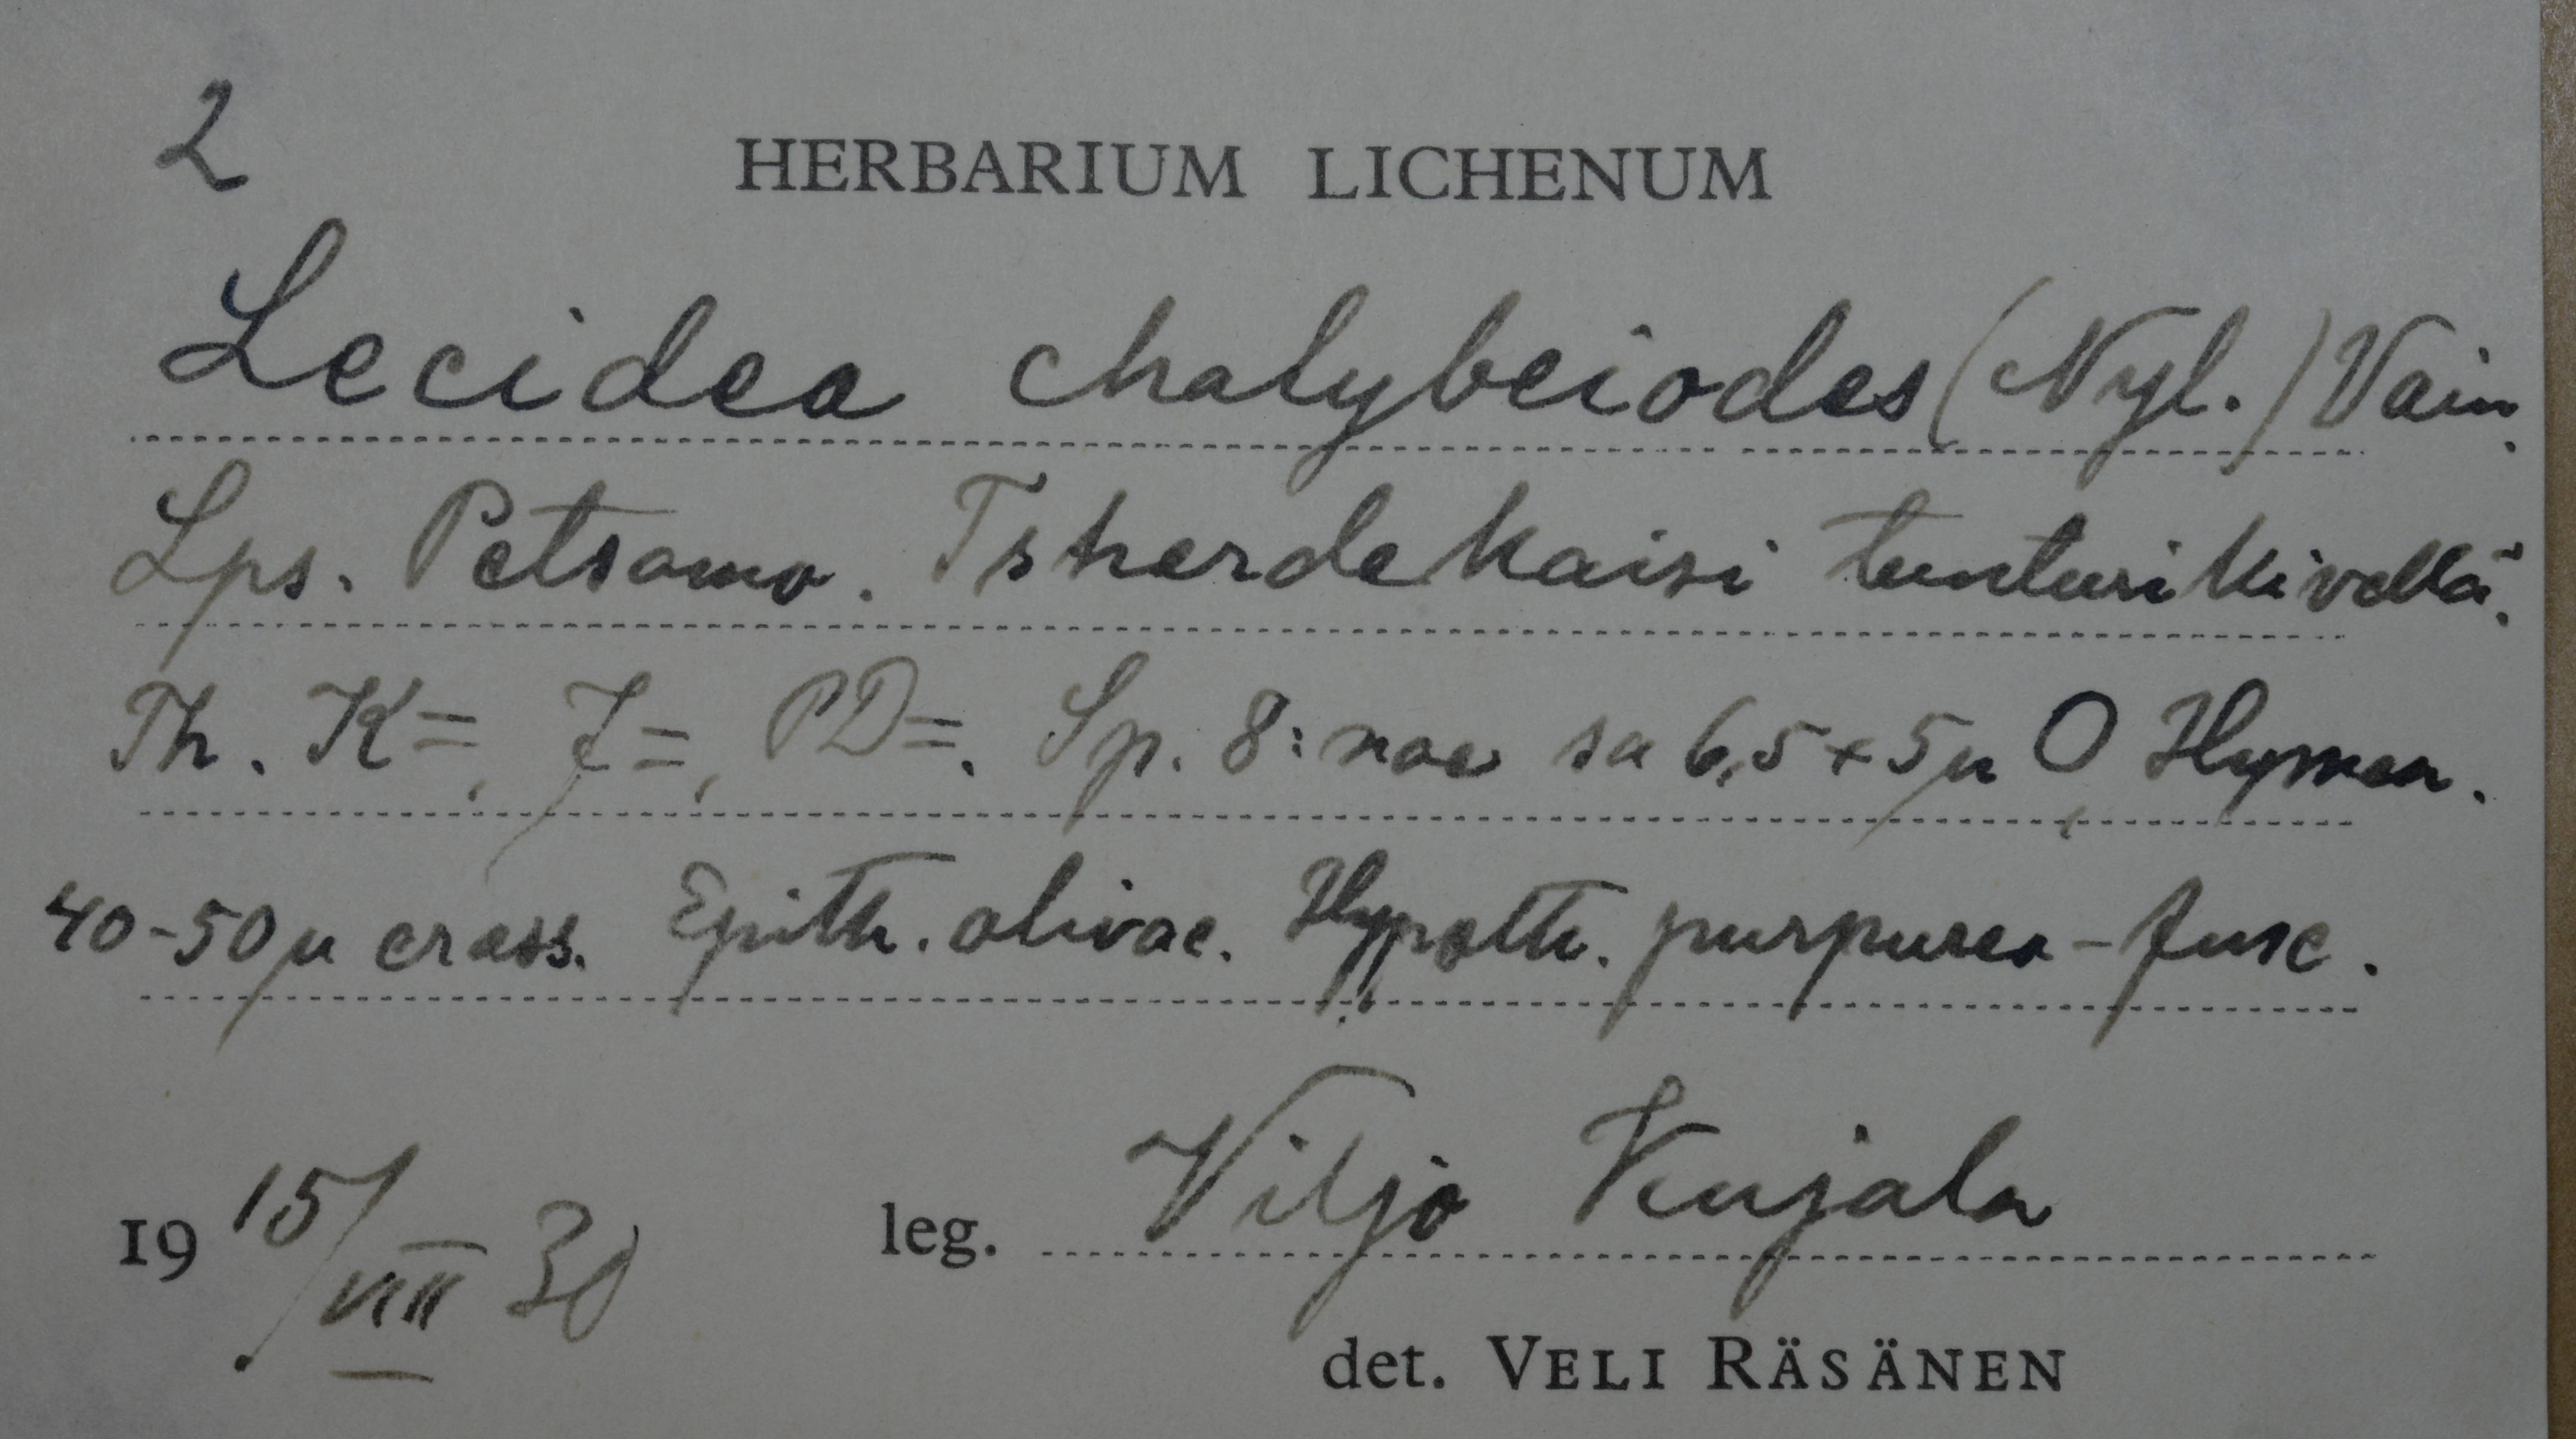 2
HERBARIUM LICHENUM
Lecidea chalybeiodes (Nyl.) Vain.
Lps. Petsamo. Tsherdekaisi tunturi kivellä.
Th. K=, J=, PD=. Sp. 8:nae sa 6,5 x 5 µ O Hymen.
40-50 µ crass. Epith. olivac. Hypoth. purpureo-fusc.
19 15/VIII 30 leg. Viljo Kujala
det. VELI RÄSÄNEN